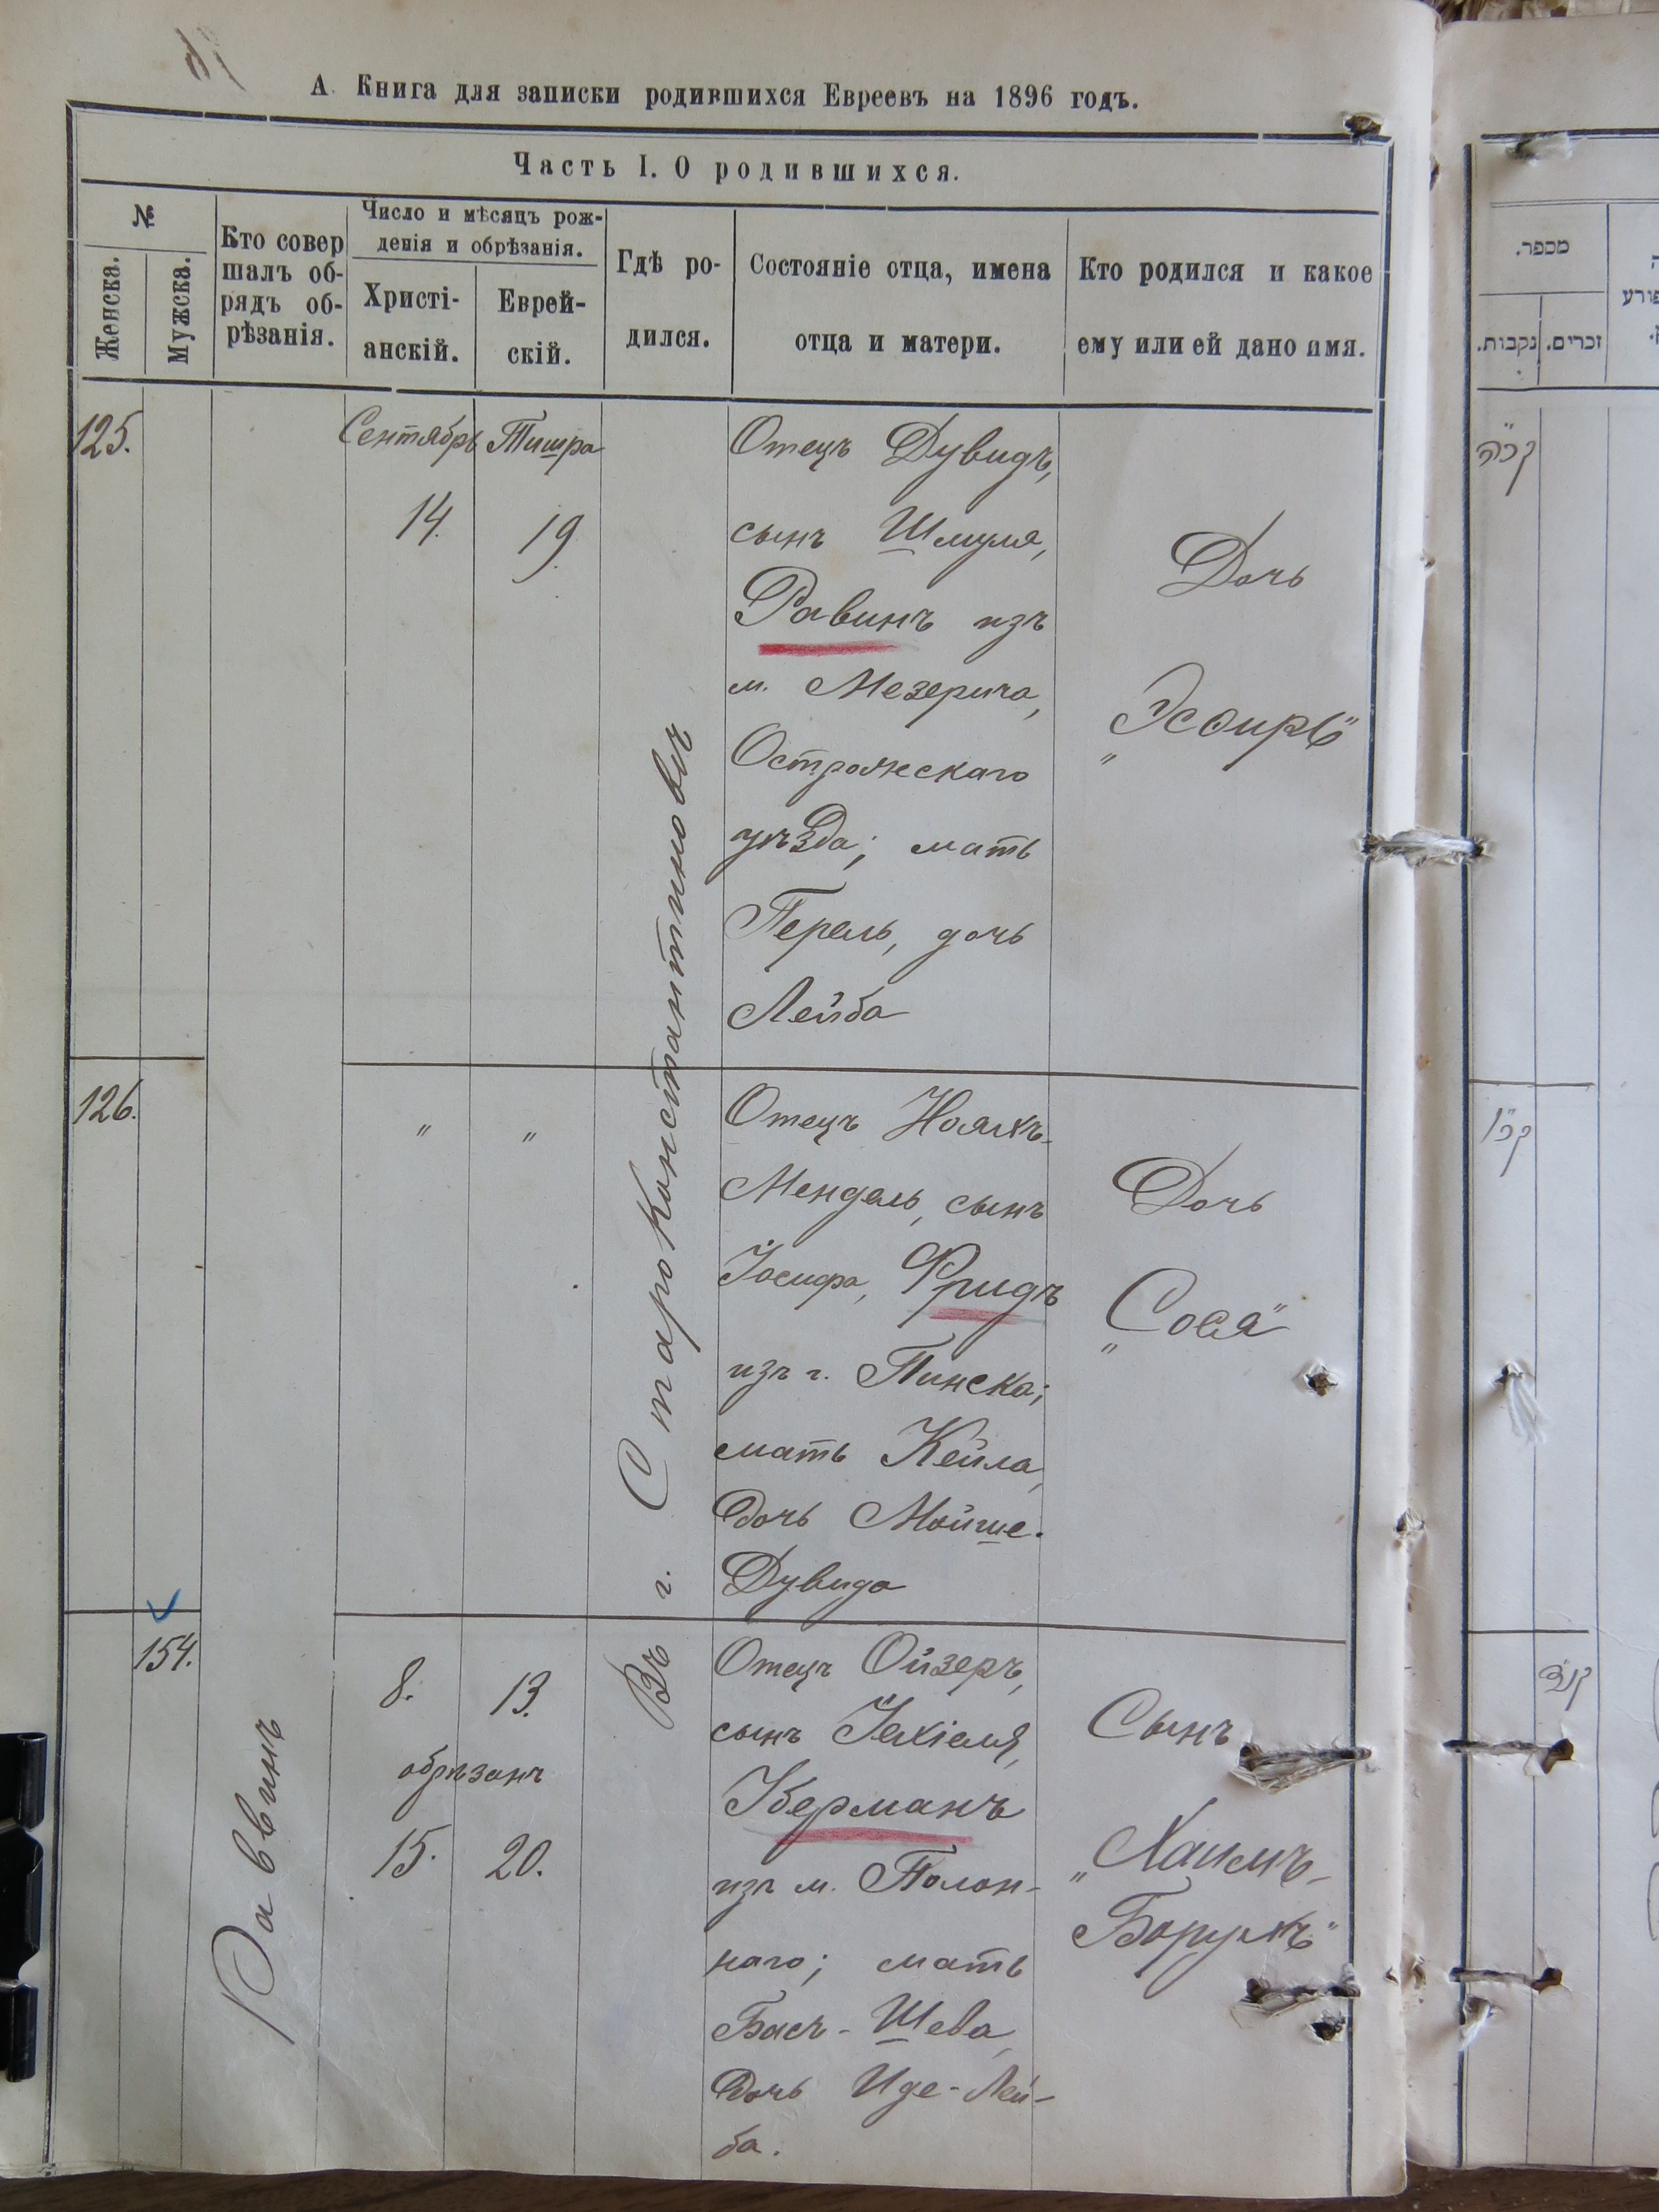 А. Книга для записки родившихся Евреевъ на 1896 годъ.
Часть I. О родившихся.
№
Женска.
Мужска.
Кто совер
шалъ об-
рядъ об-
рѣзанія.
Число и мѣсяцъ рож-
денія и обрѣзанія.
Христі-
анскій.
Еврей-
скій.
Гдѣ ро-
дился.
Состояніе отца, имена
отца и матери.
Кто родился и какое
ему или ей дано имя.
125.
Сентябрь
Тишра
14.
19.
Отецъ Дувидъ,
сынъ Шмуля,
Равинъ изъ
м. Мезерича,
Острожскаго
уѣзда; мать
Перель, дочь
Лейба
Дочь
„Эсѳирь"
126.
"
"
Отецъ Нояхъ-
Мендель, сынъ
Іосифа, Фридъ
изъ г. Пинска;
мать Кейла,
дочь Мойше-
Дувида
Дочь
„Сося"
154.
8.
13.
обрѣзанъ
15.
20.
Отецъ Ойзеръ,
сынъ Іехіеля,
Керманъ
изъ м. Полон-
наго; мать
Бась-Шева,
дочь Иде-Лей-
ба.
Сынъ
„Хаимъ-
Борухъ"
Раввинъ
Въ г. Староконстантиновѣ
מספר.
נקבות.
זכרים.
קכ״ה
קכ״ו
קנ״ד